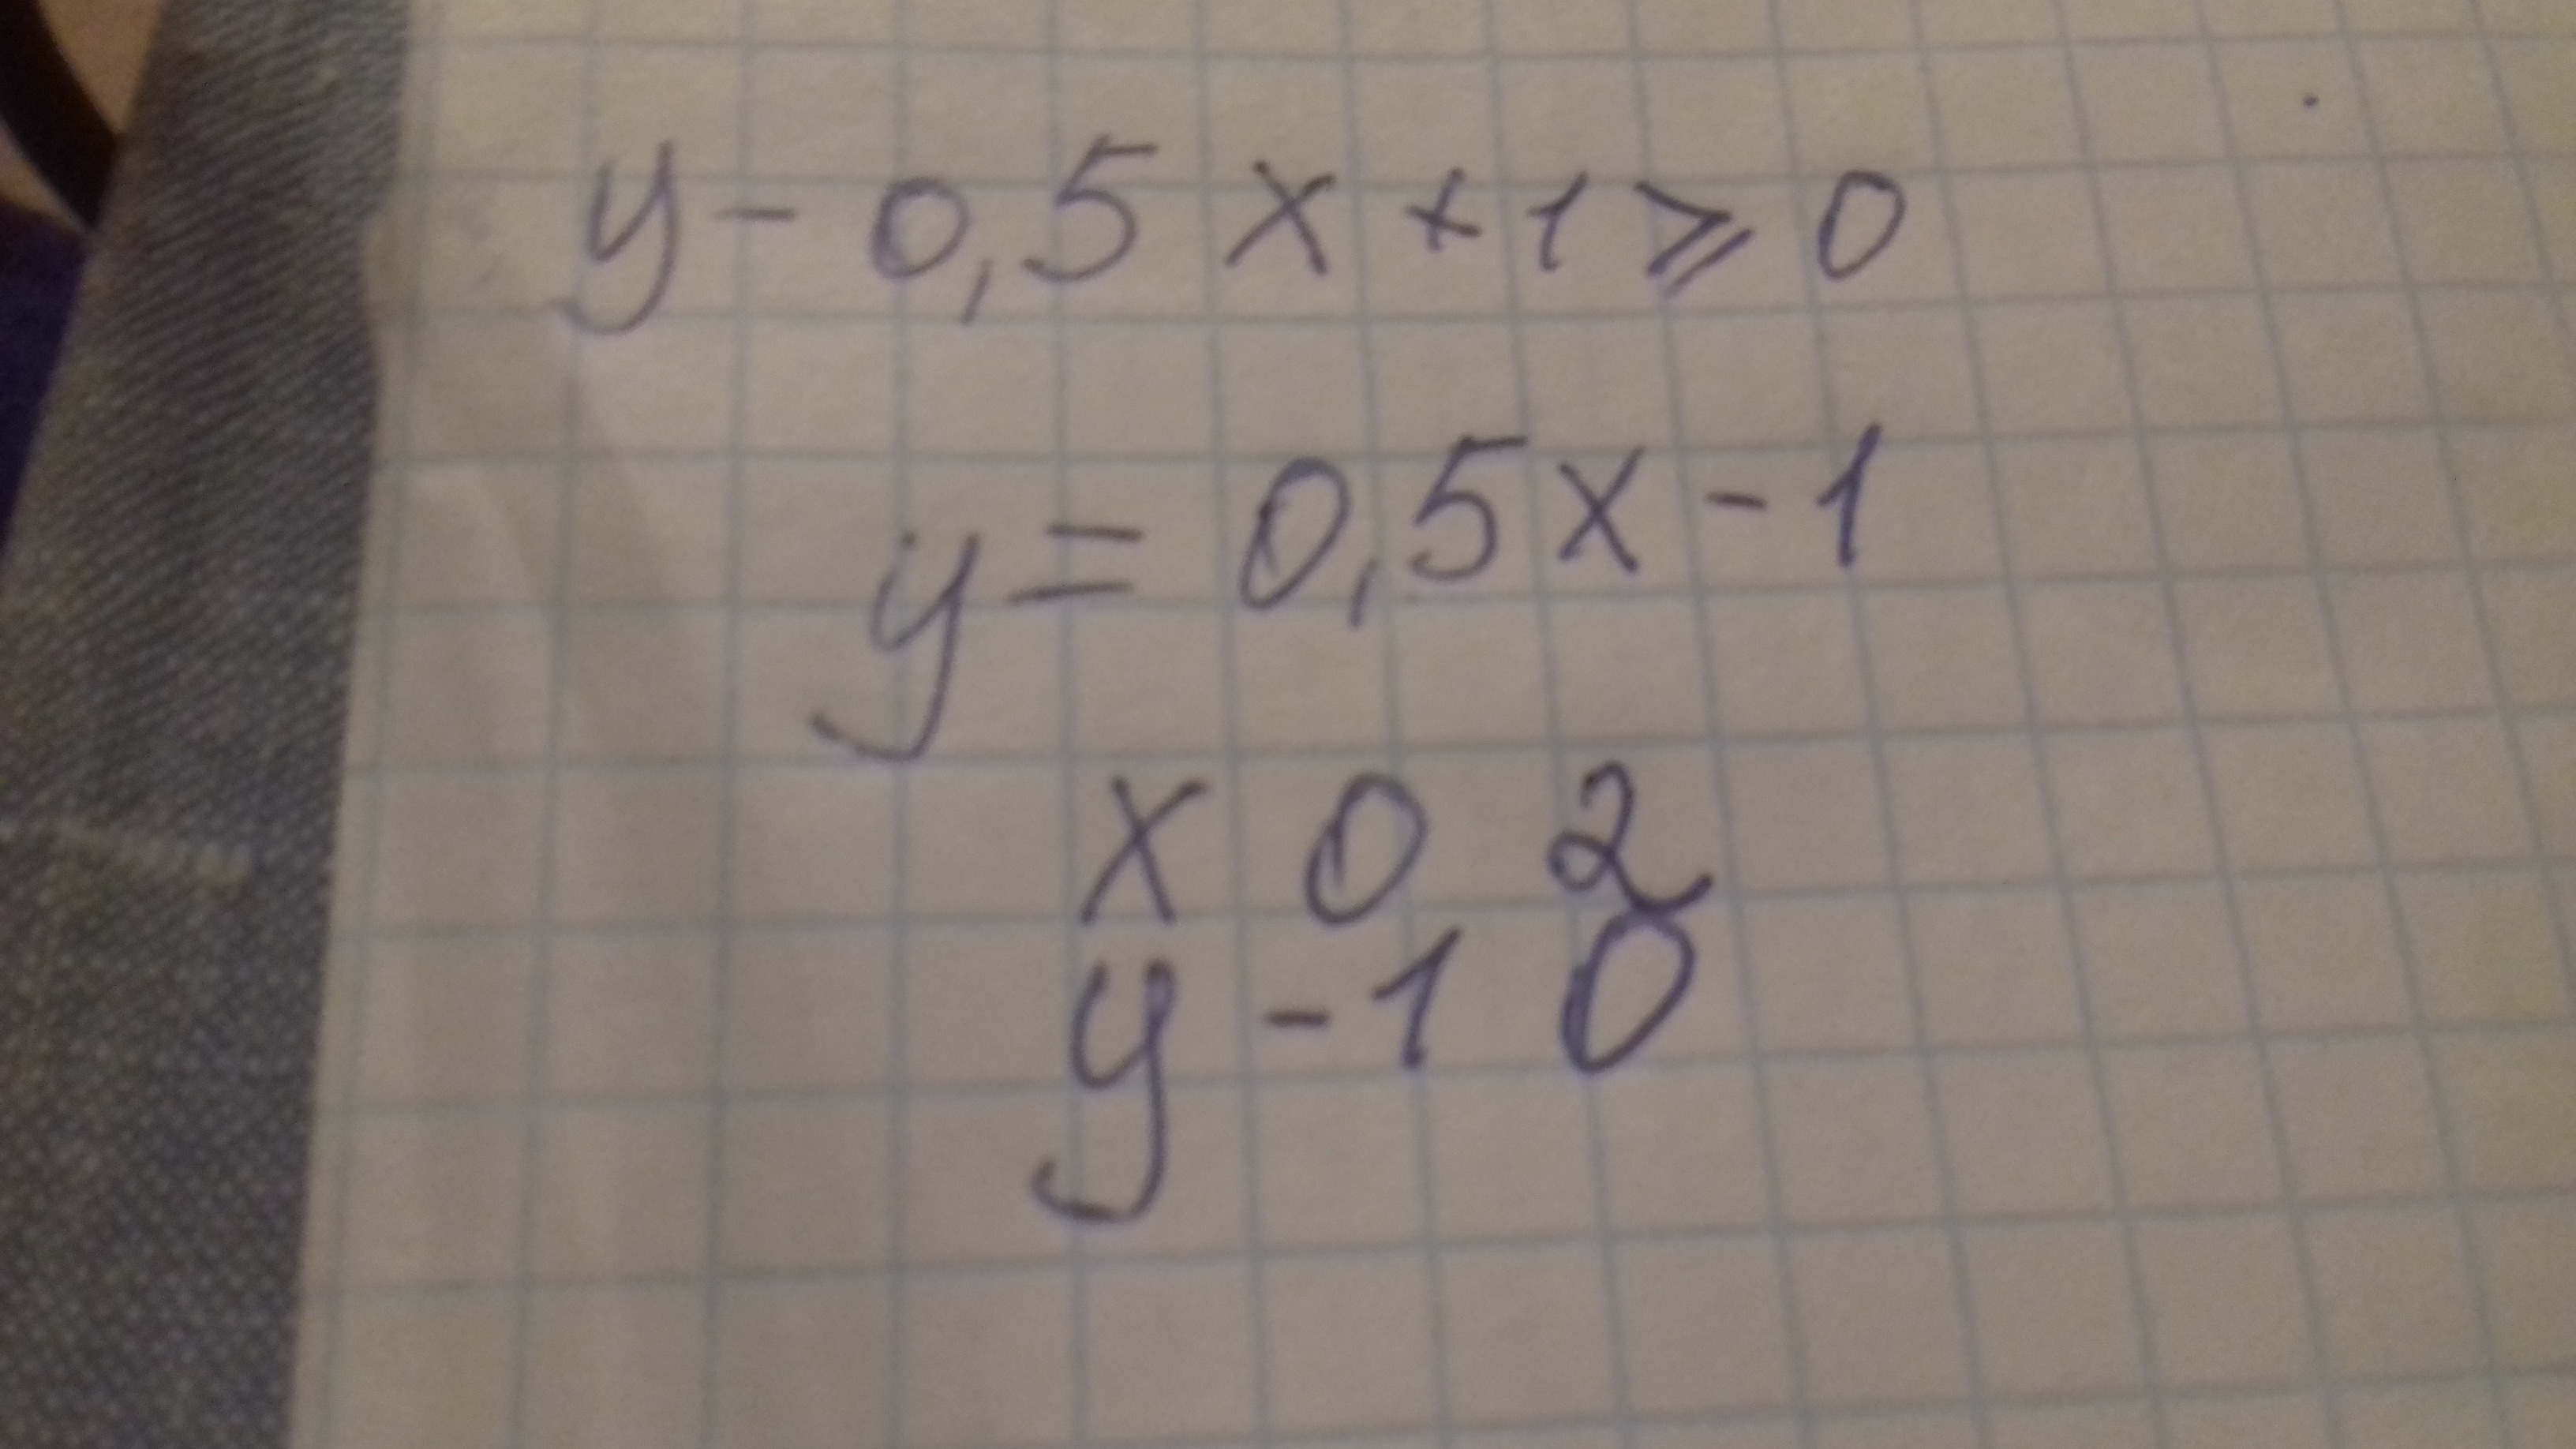 y - 0,5 x + 1 ⩾ 0
y = 0,5x - 1
x 0 2
y -1 0